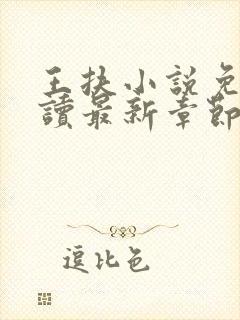 王扶小說免
讀最新章節
逗比色